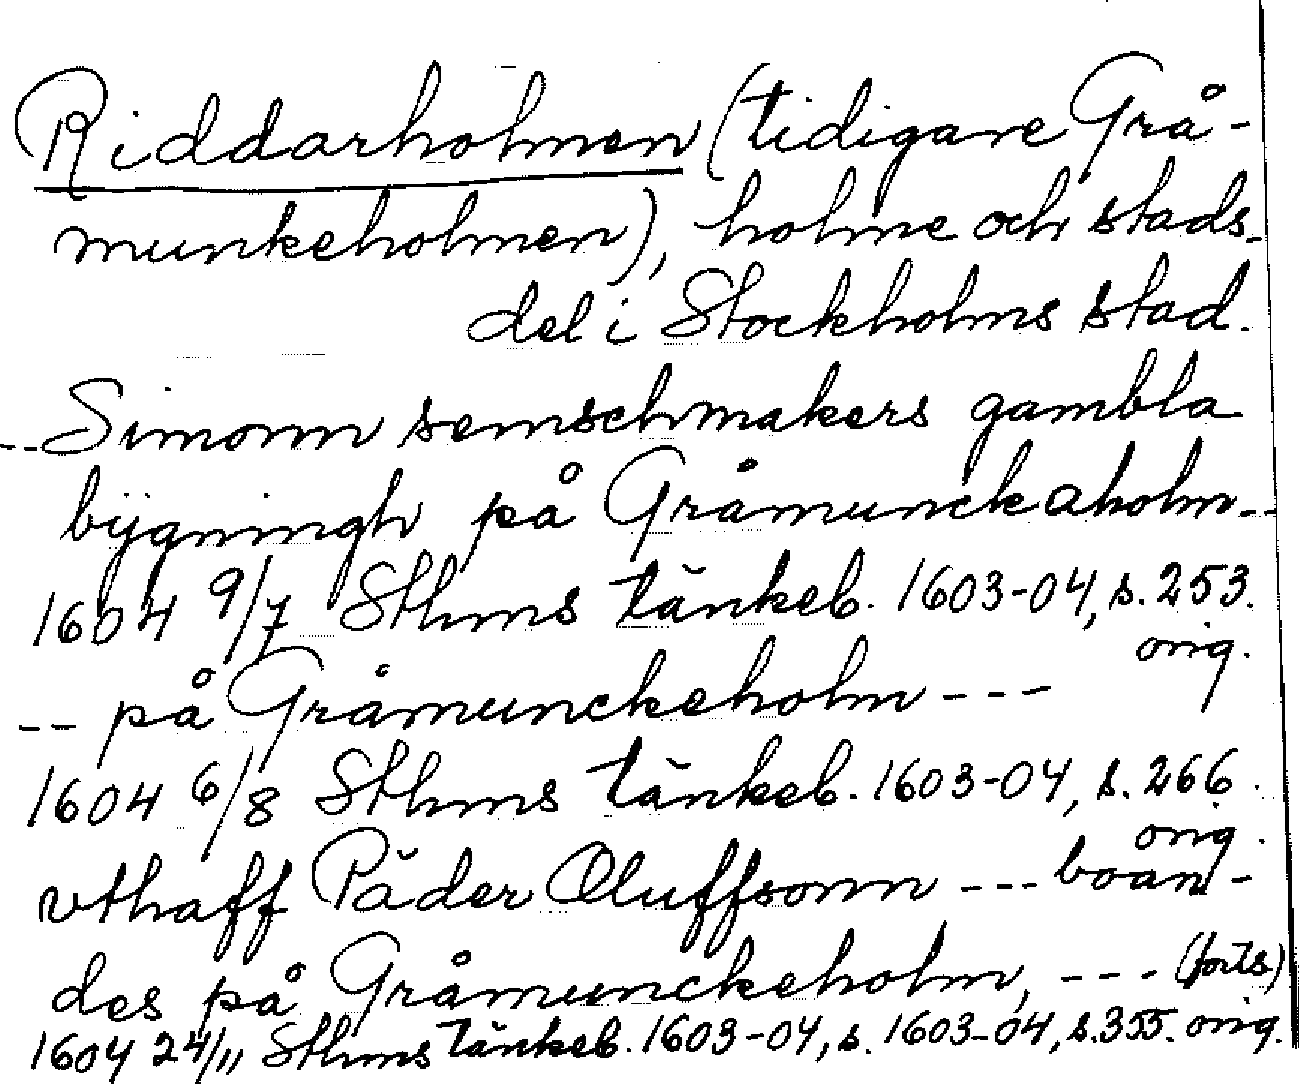 Riddarholmen (tidigare Grå-
munkeholmen), holme och stads-
del i Stockholms stad.
-- Simonn semschmakers gambla
bÿgningh på Gråmunckaholm --
1604 9/7 Sthms tänkeb. 1603-04, s. 253.
orig.
-- på Gråmunckeholm ---
1604 6/8 Sthms tänkeb. 1603-04, s. 266.
orig.
vthaff Päder Oluffsonn --- boan-
des på Gråmunckeholm, --- (forts)
1604 24/11 Sthms tänkeb. 1603-04, s. 1603-04, s. 355. orig.